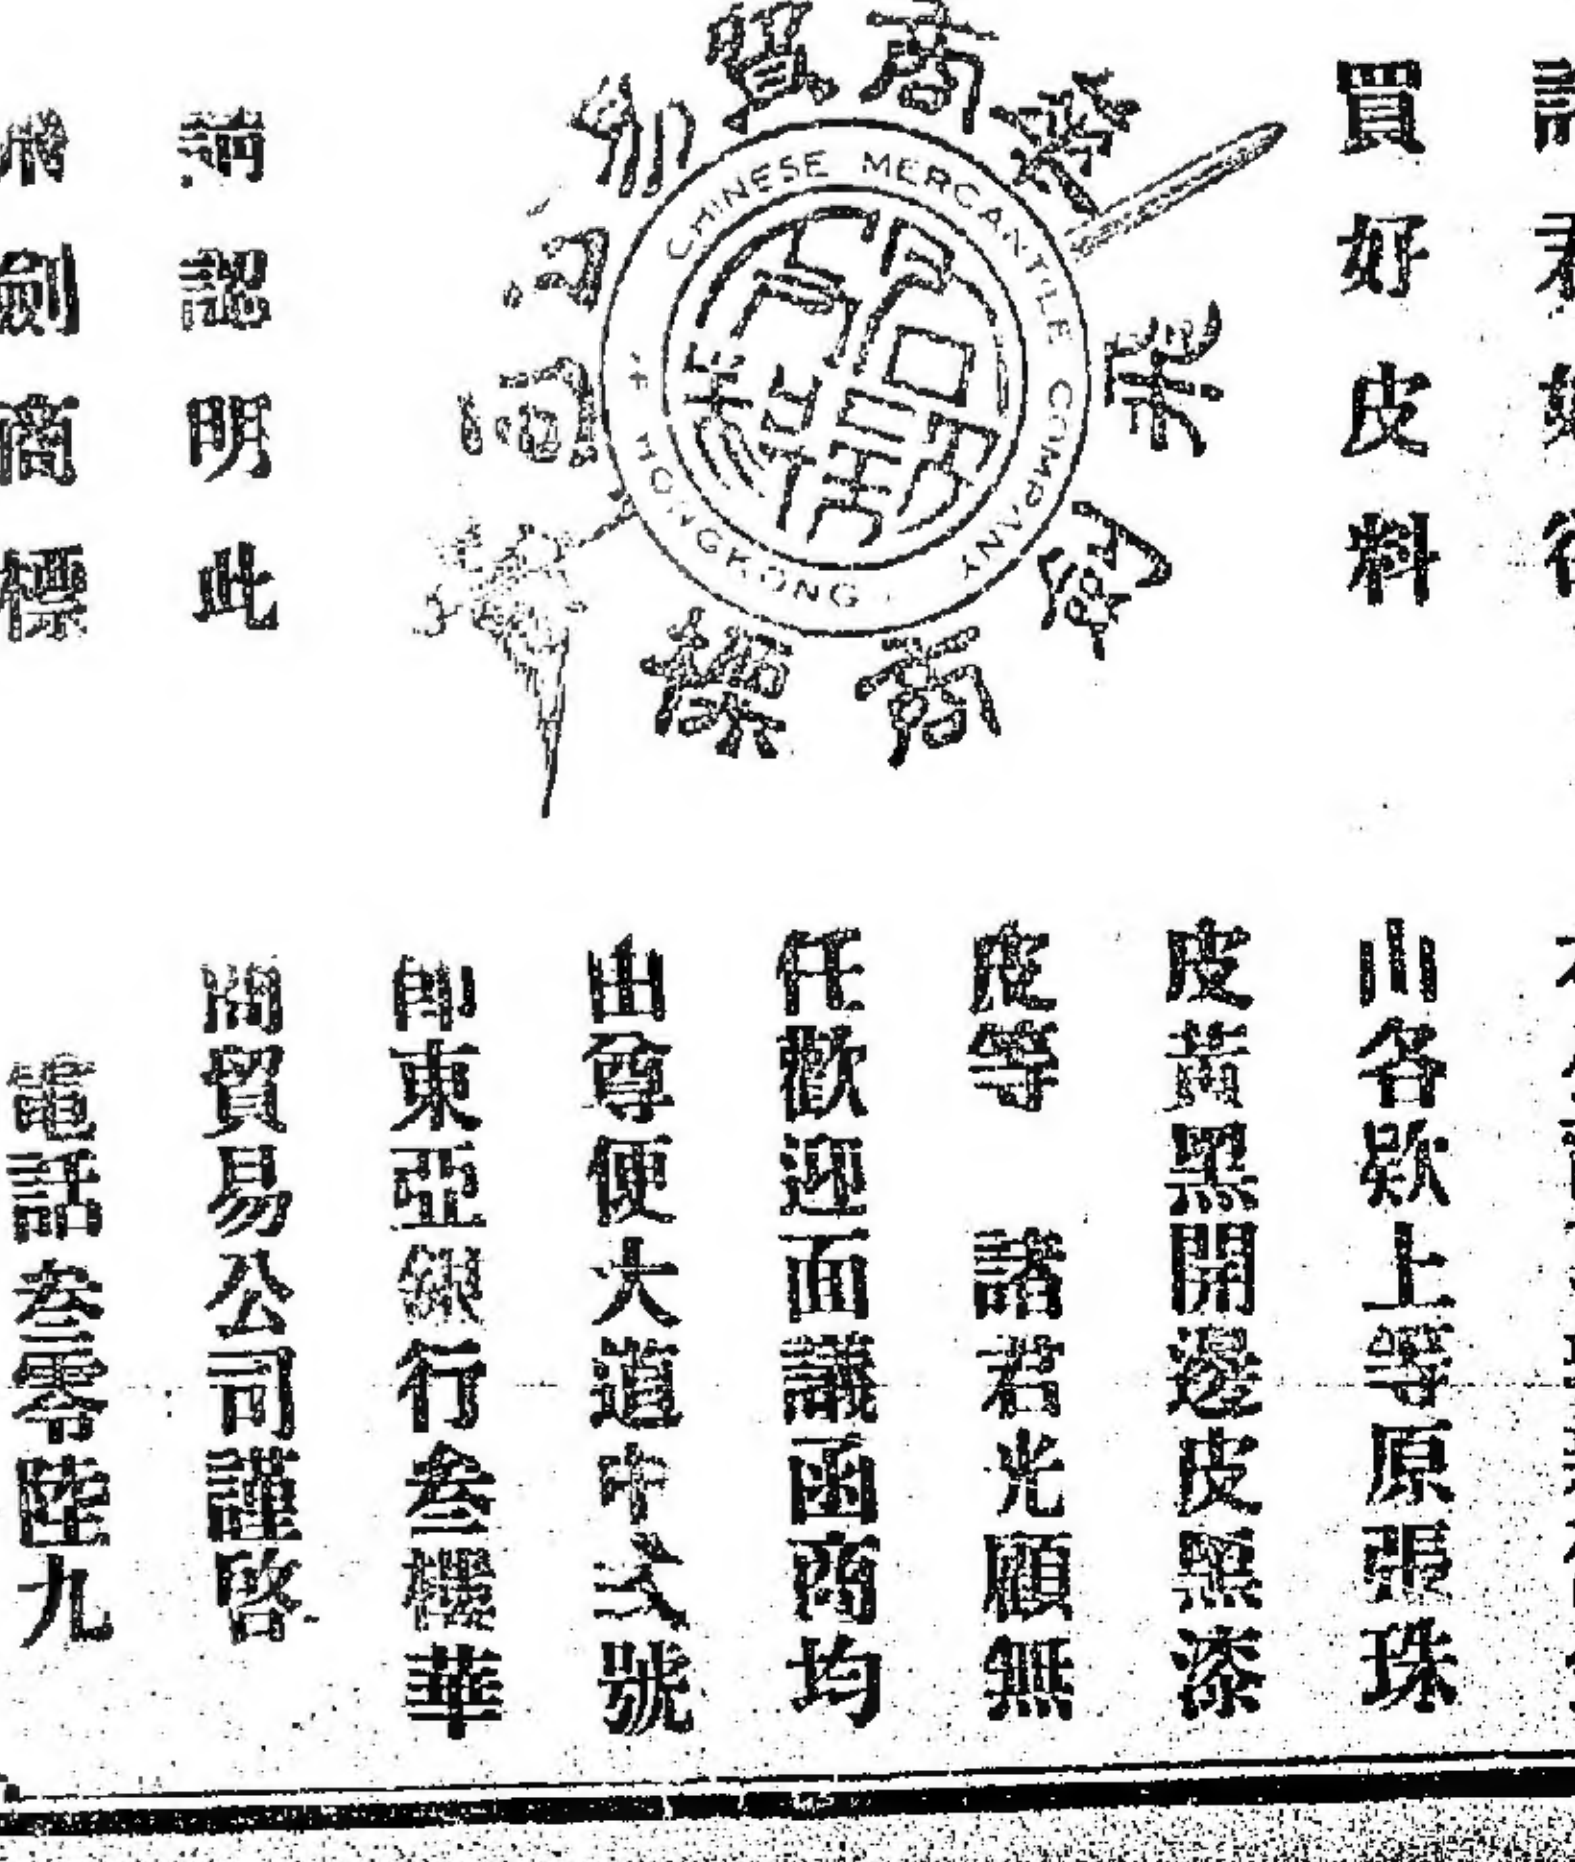 買好皮料
華商貿易公司
飛劍商標
CHINESE MERCANTILE COMPANY
HONGKONG
請認明此
飛劍商標
山各欵上等原張珠
皮黃黑開邊皮黑漆
皮等 諸君光顧無
任歡迎面議函商均
由尊便大道中 號
即東亞銀行叁樓華
商貿易公司謹啓
電話叁零陸九